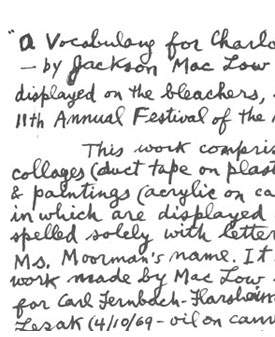 "A Vocabulary for Charlo
— by Jackson Mac Low
displayed on the bleachers,
11th Annual Festival of the
This work compris
collages (duct tape on plast
& paintings (acrylic on ca
in which are displayed
spelled solely with letter
Ms. Moorman's name. It
work made by Mac Low
for Carl Fernbach-Flarsheim
Lesak (4/10/69 - oil on canv